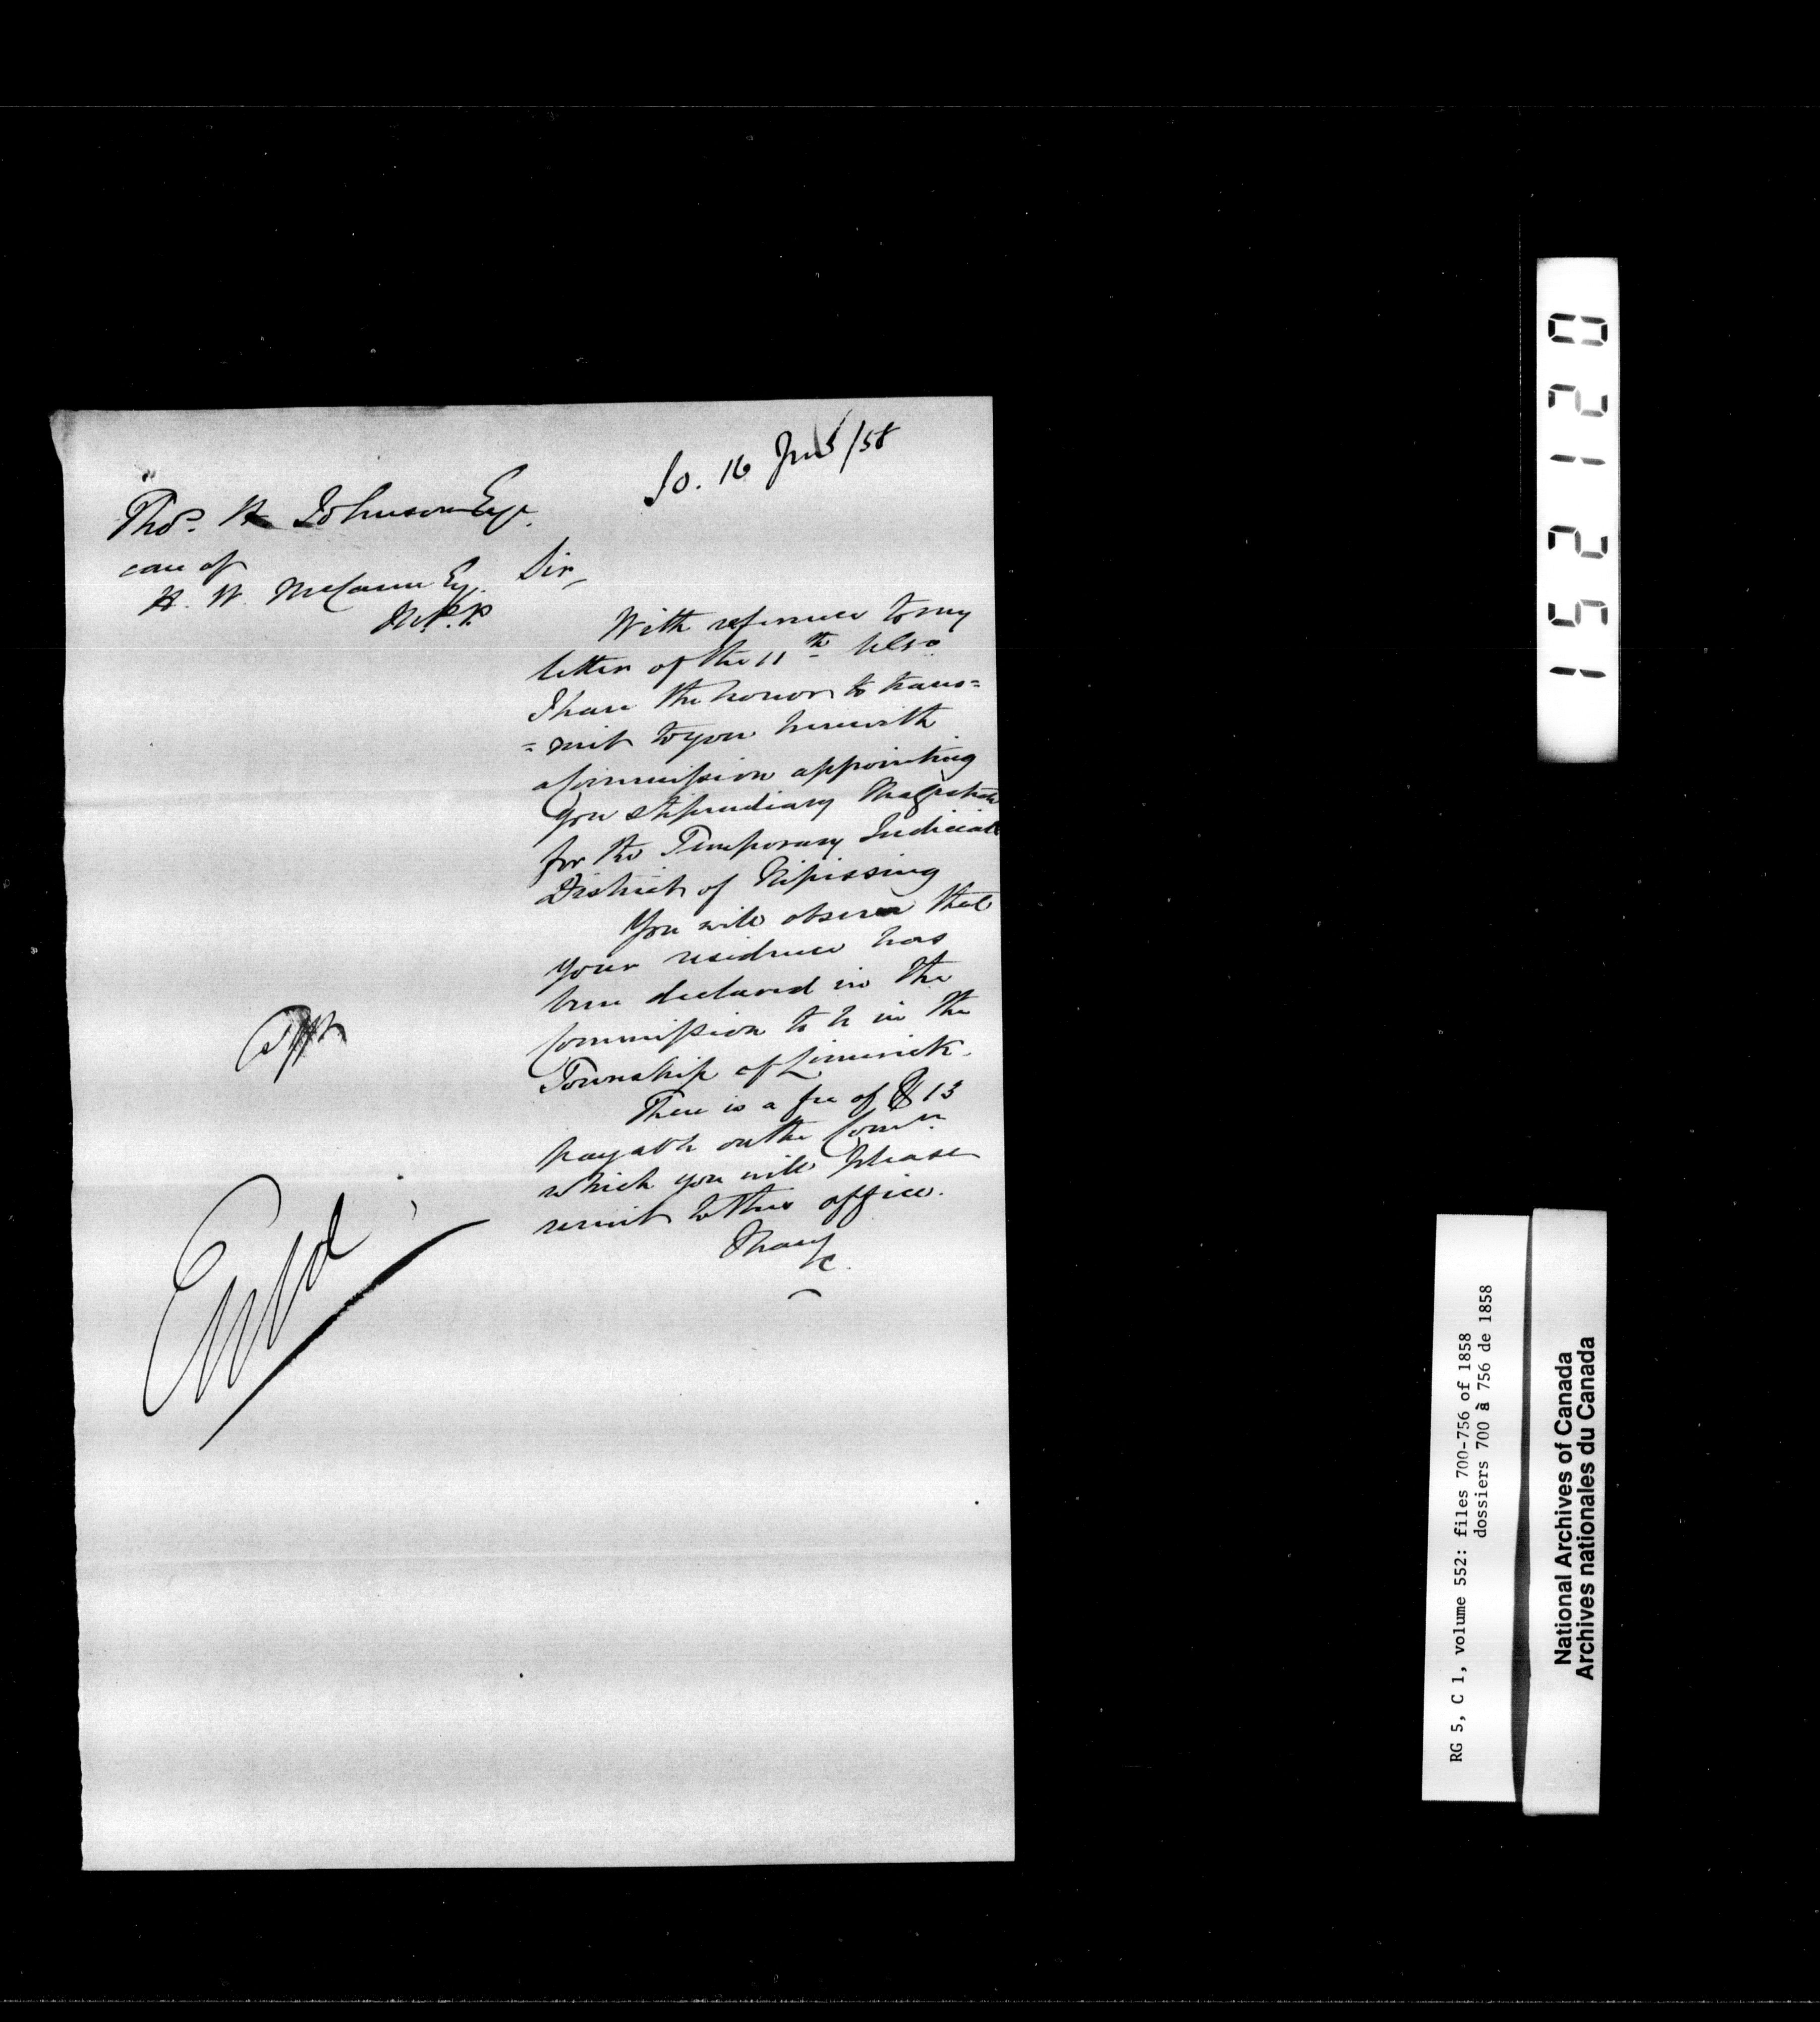 So. 16 June/58
Thos. H Johnson Esqr.
care of
H. W. McCann Esq.
M.P.P.
Sir,
With reference to my
letter of the 11th Ulto
I have the honor to trans=
=mit to you herewith
a Commission appointing
you stipendiary Magistrate
for the Temporary Judicial
District of Nipissing
You will observe that
your residence has
been declared in the
Commission to be in the
Township of Limerick.
There is a fee of $13
payable on the Comn.
which you will please
remit to this office.
I have &c.
Entd
152120
RG 5, C 1, volume 552: files 700-756 of 1858
dossiers 700 à 756 de 1858
National Archives of Canada
Archives nationales du Canada